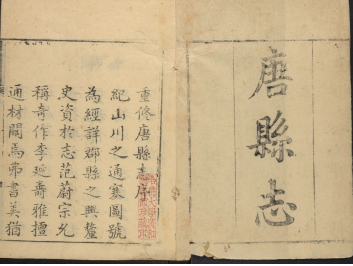 唐縣志
重修唐縣志序
紀山川之通塞圖號
為經詳郡縣之興釐
史資於志范蔚宗允
稱奇作李延壽雅擅
通材闕焉弗書美猶